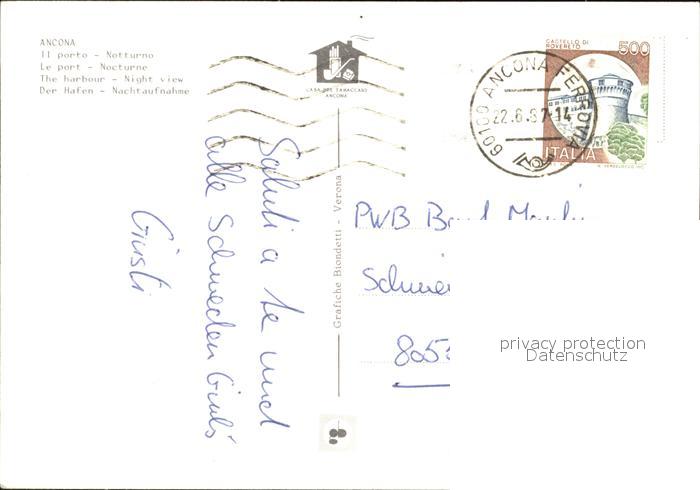 ANCONA
Il porto - Notturno
Le port - Nocturne
The harbour - Night view
Der Hafen - Nachtaufnahme
CASA DEL TABACCAIO
ANCONA
CASTELLO DI
ROVERETO
500
ITALIA
60100 ANCONA FERROVIA
22.6.87-14
Saluti a te und
alle Schweden Giuls
Giusti
Grafiche Biondetti - Verona
PWB
805
privacy protection
Datenschutz